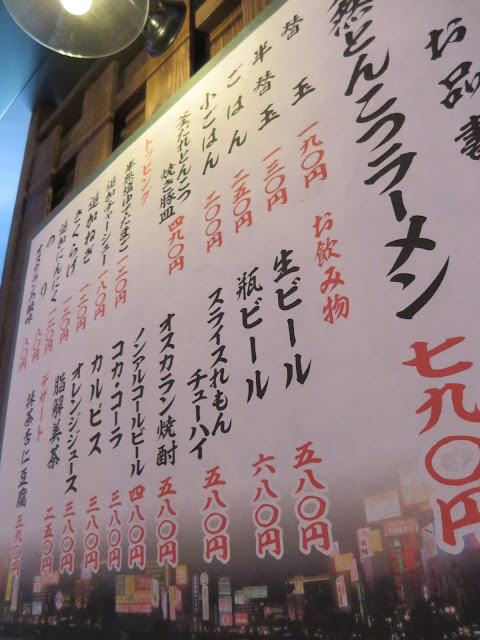 お品書
然とんこつラーメン 七九〇円
替玉 一九〇円
半替玉 一三〇円
ごはん 二五〇円
小ごはん 二〇〇円
焼き豚皿 四九〇円
トッピング
半熟塩ゆでたまご 一二〇円
追加チャーシュー 一八〇円
追加ねぎ 一二〇円
きくらげ 一二〇円
追加にんにく 一二〇円
のり 八〇円
オスカランの酸味 八〇円
お飲み物
生ビール 五八〇円
瓶ビール 六八〇円
スライスれもんチューハイ 五八〇円
オスカラン焼酎 五八〇円
ノンアルコールビール 四八〇円
コカ・コーラ 三八〇円
カルピス 三八〇円
オレンジジュース 三八〇円
脂解美茶 二五〇円
デザート
抹茶杏仁豆腐 三九〇円